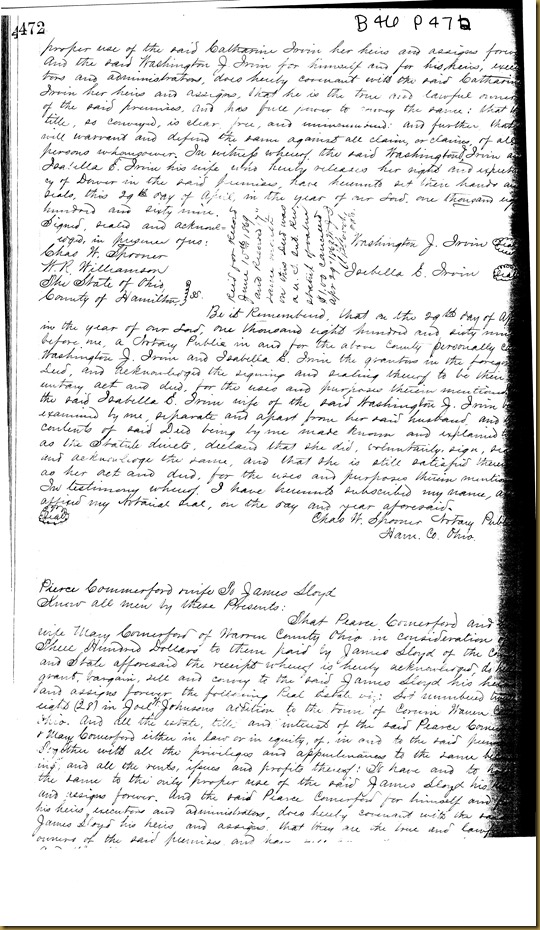 4472
B46 P472
proper use of the said Catharine Irvin her heirs and assigns
And the said Washington J. Irvin for himself and for his heirs,
tors and administrators, does hereby covenant with the said
Irvin her heirs and assigns, that he is the true and lawful owner
of the said premises, and has full power to convey the same: that
title, so conveyed, is clear, free, and unincumbered: and further, that
will warrant and defend the same against all claim, or claims, of all
persons whomsoever. In witness whereof the said Washington J. Irvin
Isabella E. Irvin his wife who hereby releases her right and
cy of Dower in the said premises, have hereunto set their hands and
seals, this 29th day of April, in the year of our Lord, one thousand
hundred and sixty nine.
Signed, sealed and
in presence of us:
Chas W. Sprover
W. R. Williamson
The State of Ohio,
County of Hamilton, ss.
Recd for Record
June 10th 1869
and Record
same
on this deed was
a U.S. Rev.
Washington J. Irvin Seal
Isabella E. Irvin Seal
Be it Remembered, that on the 29th day of
in the year of our Lord, one thousand eight hundred and sixty
before me, a Notary Public in and for the above County personally
Washington J. Irvin and Isabella E. Irvin the grantors in the
Deed, and acknowledged the signing and sealing thereof to be their
untary act and deed, for the uses and purposes therein
the said Isabella E. Irvin wife of the said Washington J. Irvin
examined by me, separate and apart from her said husband, and
contents of said Deed being by me made known and explained
as the Statute directs, declared that she did, voluntarily, sign,
and acknowledge the same, and that she is still satisfied
as her act and deed, for the uses and purposes therein
In testimony whereof, I have hereunto subscribed my name,
affixed my Notarial Seal, on the day and year aforesaid.
Seal
Chas W. Sprover Notary
Ham. Co. Ohio.
Pierce Commerford wife To James Lloyd
Know all men by these Presents:
That Pearce Comerford and
wife Mary Comerford of Warren County Ohio in consideration
Three Hundred Dollars to them paid by James Lloyd of the
and State aforesaid the receipt whereof is hereby acknowledged, do
grant, bargain, sell and convey to the said James Lloyd his
and assigns forever the following Real Estate viz: Lot numbered
eight (28) in Joel Johnsons addition to the town of Corwin Warren
Ohio. And all the estate, title and interest of the said Pearce
& Mary Comerford either in law or in equity, of, in and to the said
Together with all the privileges and appurtenances to the same
ing, and all the rents, issues and profits thereof: To have and to
the same to the only proper use of the said James Lloyd his
and assigns forever. And the said Pearce Comerford for himself and
his heirs, executors and administrators, does hereby covenant with the
James Lloyd his heirs and assigns, that they are the true and
owners of the said premises and have